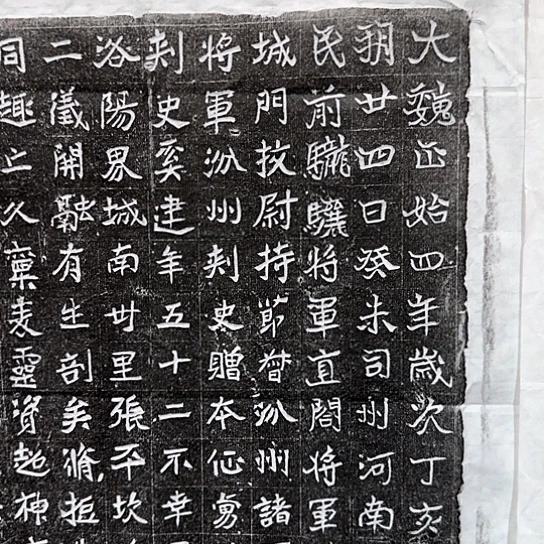 大魏正始四年歲次丁亥
朔廿四日癸未司州河南
民前䮾驤將軍直閤將軍
城門挍尉持節督汾州諸
將軍汾州刾史贈本
刾史奚建年五十二不幸
洛陽界城南丗里張平坎
二儀開融有生剖矣脩
同趣之久稟靈資起神